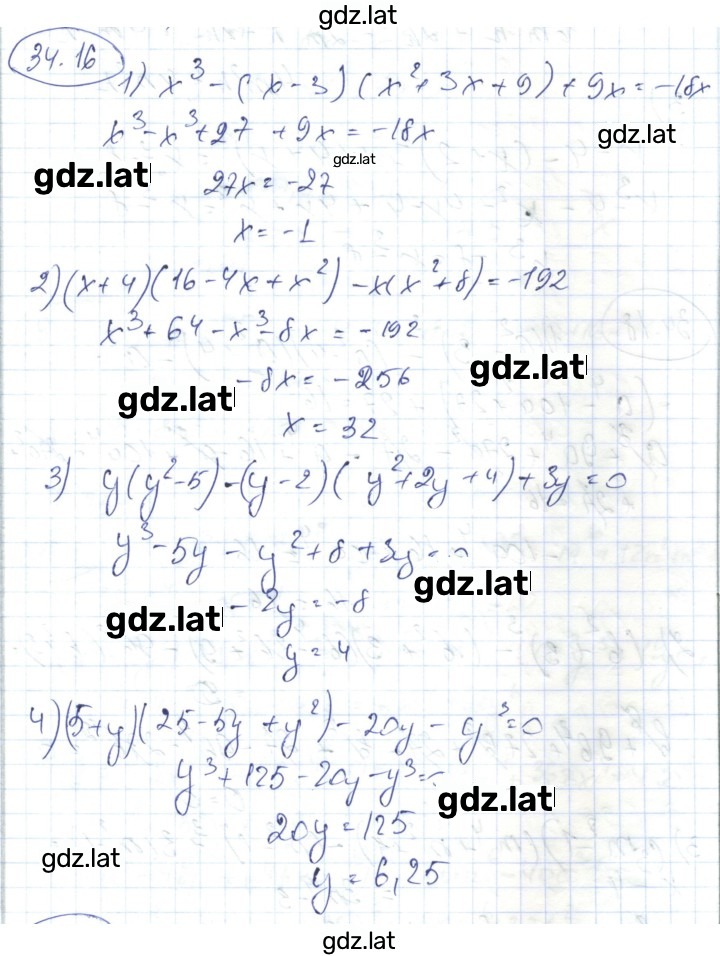 gdz.lat
34.16
1) x³ - (x - 3)(x² + 3x + 9) + 9x = -18x
x³ - x³ + 27 + 9x = -18x
gdz.lat
gdz.lat
gdz.lat
27x = -27
x = -1
2) (x + 4)(16 - 4x + x²) - x(x² + 8) = -192
x³ + 64 - x³ - 8x = -192
gdz.lat
-8x = -256
gdz.lat
x = 32
3) y(y² - 5) - (y - 2)(y² + 2y + 4) + 3y = 0
y³ - 5y - y² + 8 + 3y = 0
gdz.lat
gdz.lat
-2y = -8
y = 4
4) (5 + y)(25 - 5y + y²) - 20y - y³ = 0
y³ + 125 - 20y - y³ =
gdz.lat
20y = 125
gdz.lat
y = 6,25
gdz.lat